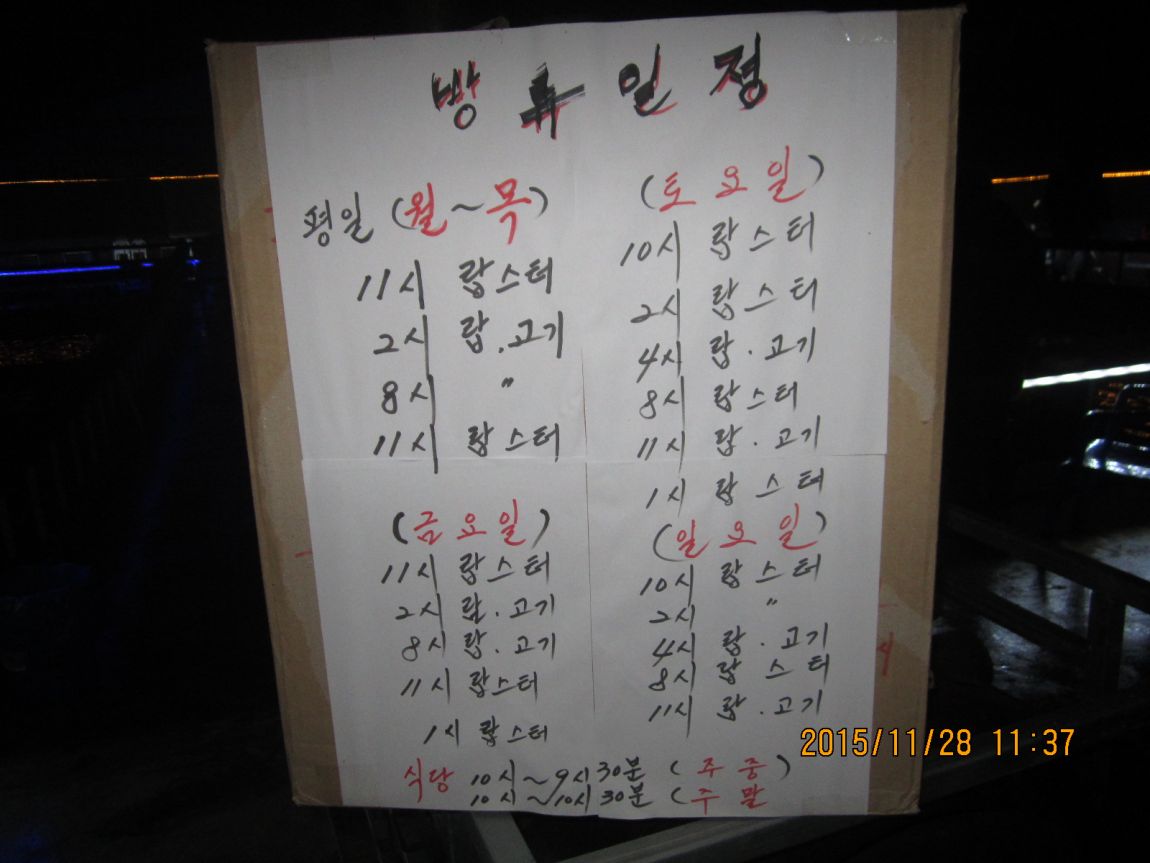 방류일정
평일 (월~목)
11시 랍스터
2시 랍.고기
8시 〃
11시 랍스터
(금요일)
11시 랍스터
2시 랍.고기
8시 랍.고기
11시 랍스터
1시 랍스터
(토요일)
10시 랍스터
2시 랍스터
4시 랍.고기
8시 랍스터
11시 랍.고기
1시 랍스터
(일요일)
10시 랍스터
2시 〃
4시 랍.고기
8시 랍스터
11시 랍.고기
식당 10시~9시30분 (주중)
10시~10시30분 (주말
2015/11/28 11:37